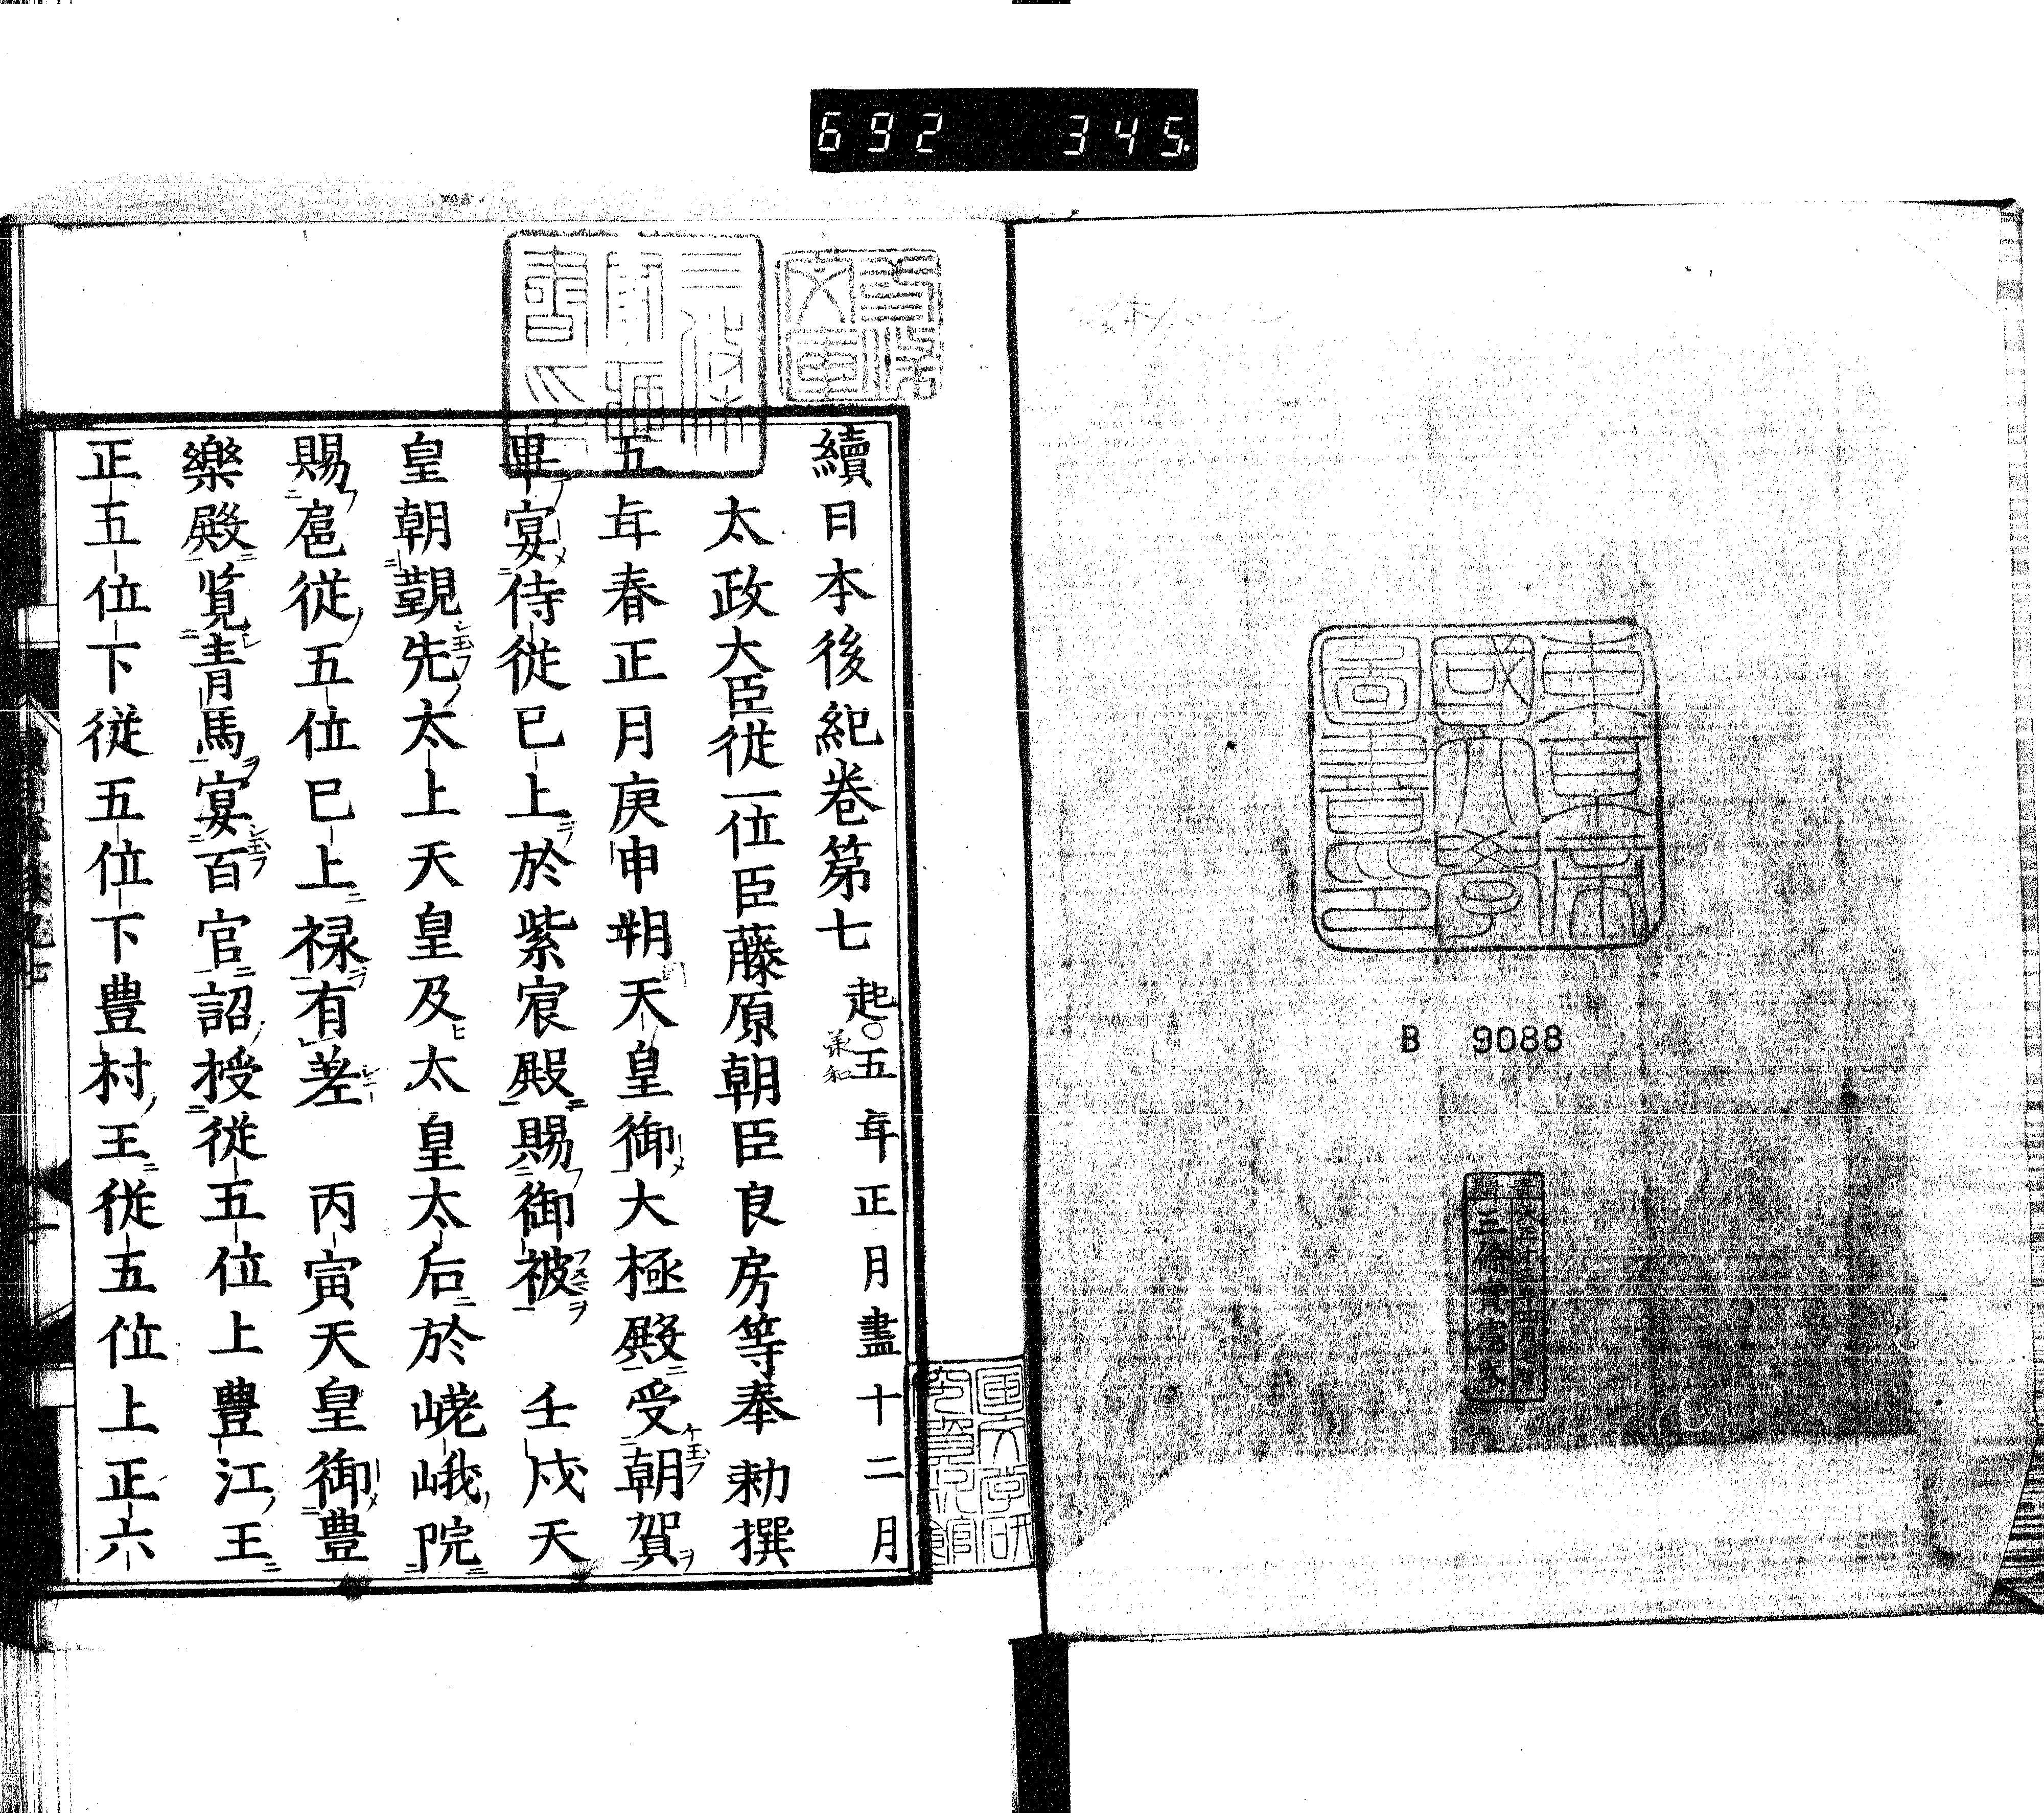 692 345
東京帝
國大學
圖書印
B 9088
三條
書印
青谿
文庫
續日本後紀卷第七 起○五年正月盡十二月
承和
太政大臣從一位臣藤原朝臣良房等奉勅撰
五年春正月庚申朔天皇御大極殿受朝賀
畢宴侍從已上於紫宸殿賜御被 壬戌天
皇朝覲先太上天皇及太皇太后於嵯峨院
賜扈從五位已上祿有差 丙寅天皇御豊
樂殿覧青馬宴百官詔授從五位上豊江王
正五位下從五位下豊村王從五位上正六